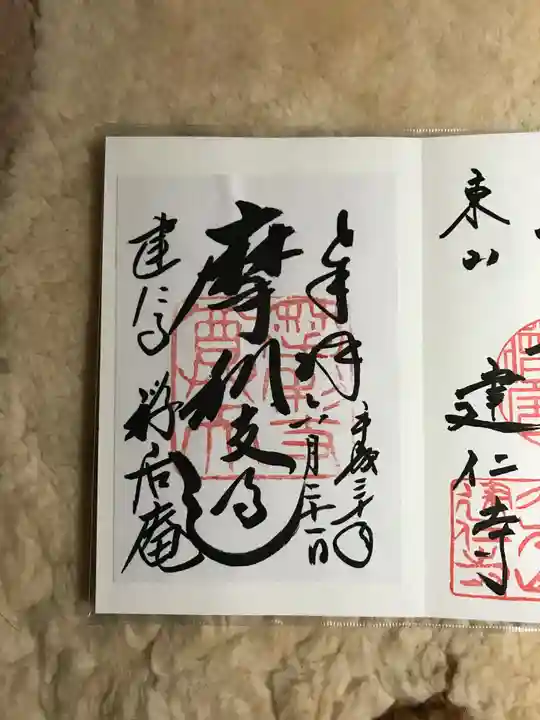 東山
建仁寺
奉拝
平成三十年
六月二十一日
摩利支天
建仁寺 禅居庵